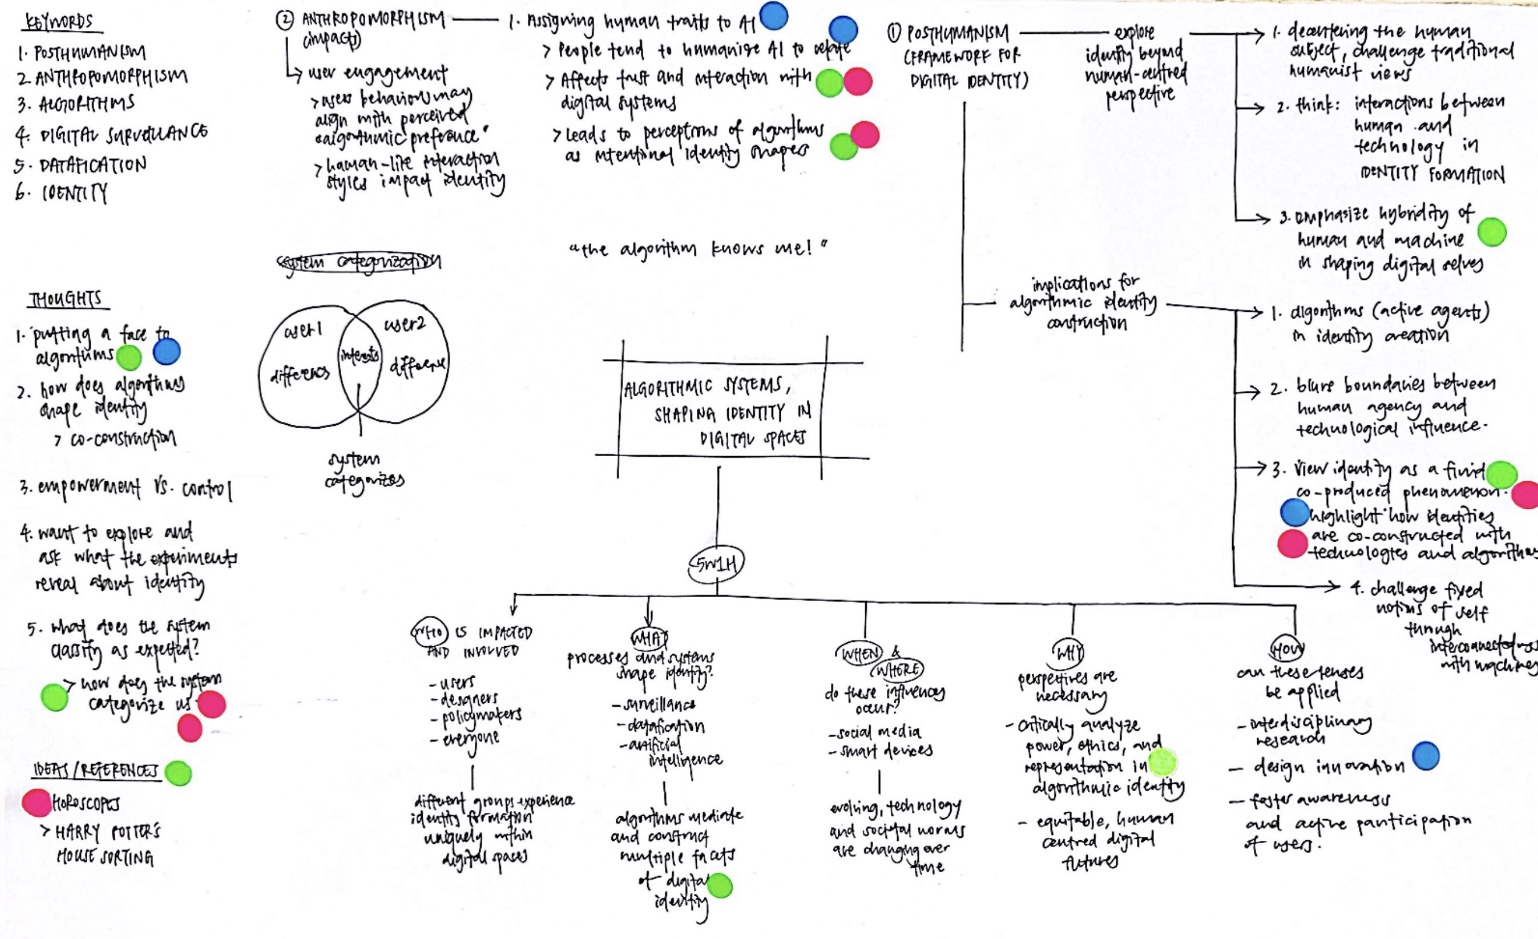 KEYWORDS
1. POSTHUMANISM
2. ANTHROPOMORPHISM
3. ALGORITHMS
4. DIGITAL SURVEILLANCE
5. DATAFICATION
6. IDENTITY
② ANTHROPOMORPHISM
(impacts)
user engagement
> users behaviours may
align with perceived
"algorithmic preference"
> human-like interaction
styles impact identity
1. Assigning human traits to AI
> People tend to humanise AI to relate
> Affects trust and interaction with
digital systems
> Leads to perceptions of algorithms
as intentional identity shapers
① POSTHUMANISM
(FRAMEWORK FOR
DIGITAL IDENTITY)
explore
identity beyond
human-centred
perspective
1. decentering the human
subject, challenge traditional
humanist views
2. think: interactions between
human and
technology in
IDENTITY FORMATION
3. emphasize hybridity of
human and machine
in shaping digital selves
implications for
algorithmic identity
construction
1. algorithms (active agents)
in identity creation
2. blurs boundaries between
human agency and
technological influence.
3. view identity as a fluid
co-produced phenomenon.
highlight how identities
are co-constructed with
technologies and algorithms
4. challenge fixed
notions of self
through
interconnectedness
with machines
"the algorithm knows me!"
system categorization
user 1
user 2
difference
interests
difference
system
categorizes
THOUGHTS
1. putting a face to
algorithms
2. how does algorithms
shape identity
> co-construction
3. empowerment vs. control
4. want to explore and
ask what the experiments
reveal about identity
5. what does the system
classify as expected?
> how does the system
categorize us
IDEAS/REFERENCES
> HOROSCOPES
> HARRY POTTER'S
HOUSE SORTING
ALGORITHMIC SYSTEMS,
SHAPING IDENTITY IN
DIGITAL SPACES
5W1H
WHO IS IMPACTED
AND INVOLVED
- users
- designers
- policymakers
- everyone
different groups experience
identity formation
uniquely within
digital spaces
WHAT
processes and systems
shape identity?
- surveillance
- datafication
- artificial
intelligence
algorithms mediate
and construct
multiple facets
of digital
identity
WHEN &
WHERE
do these influences
occur?
- social media
- smart devices
evolving, technology
and societal norms
are changing over
time
WHY
perspectives are
necessary
- critically analyze
power, ethics, and
representation in
algorithmic identity
- equitable, human
centred digital
futures
HOW
can these lenses
be applied
- interdisciplinary
research
- design innovation
- foster awareness
and active participation
of users.